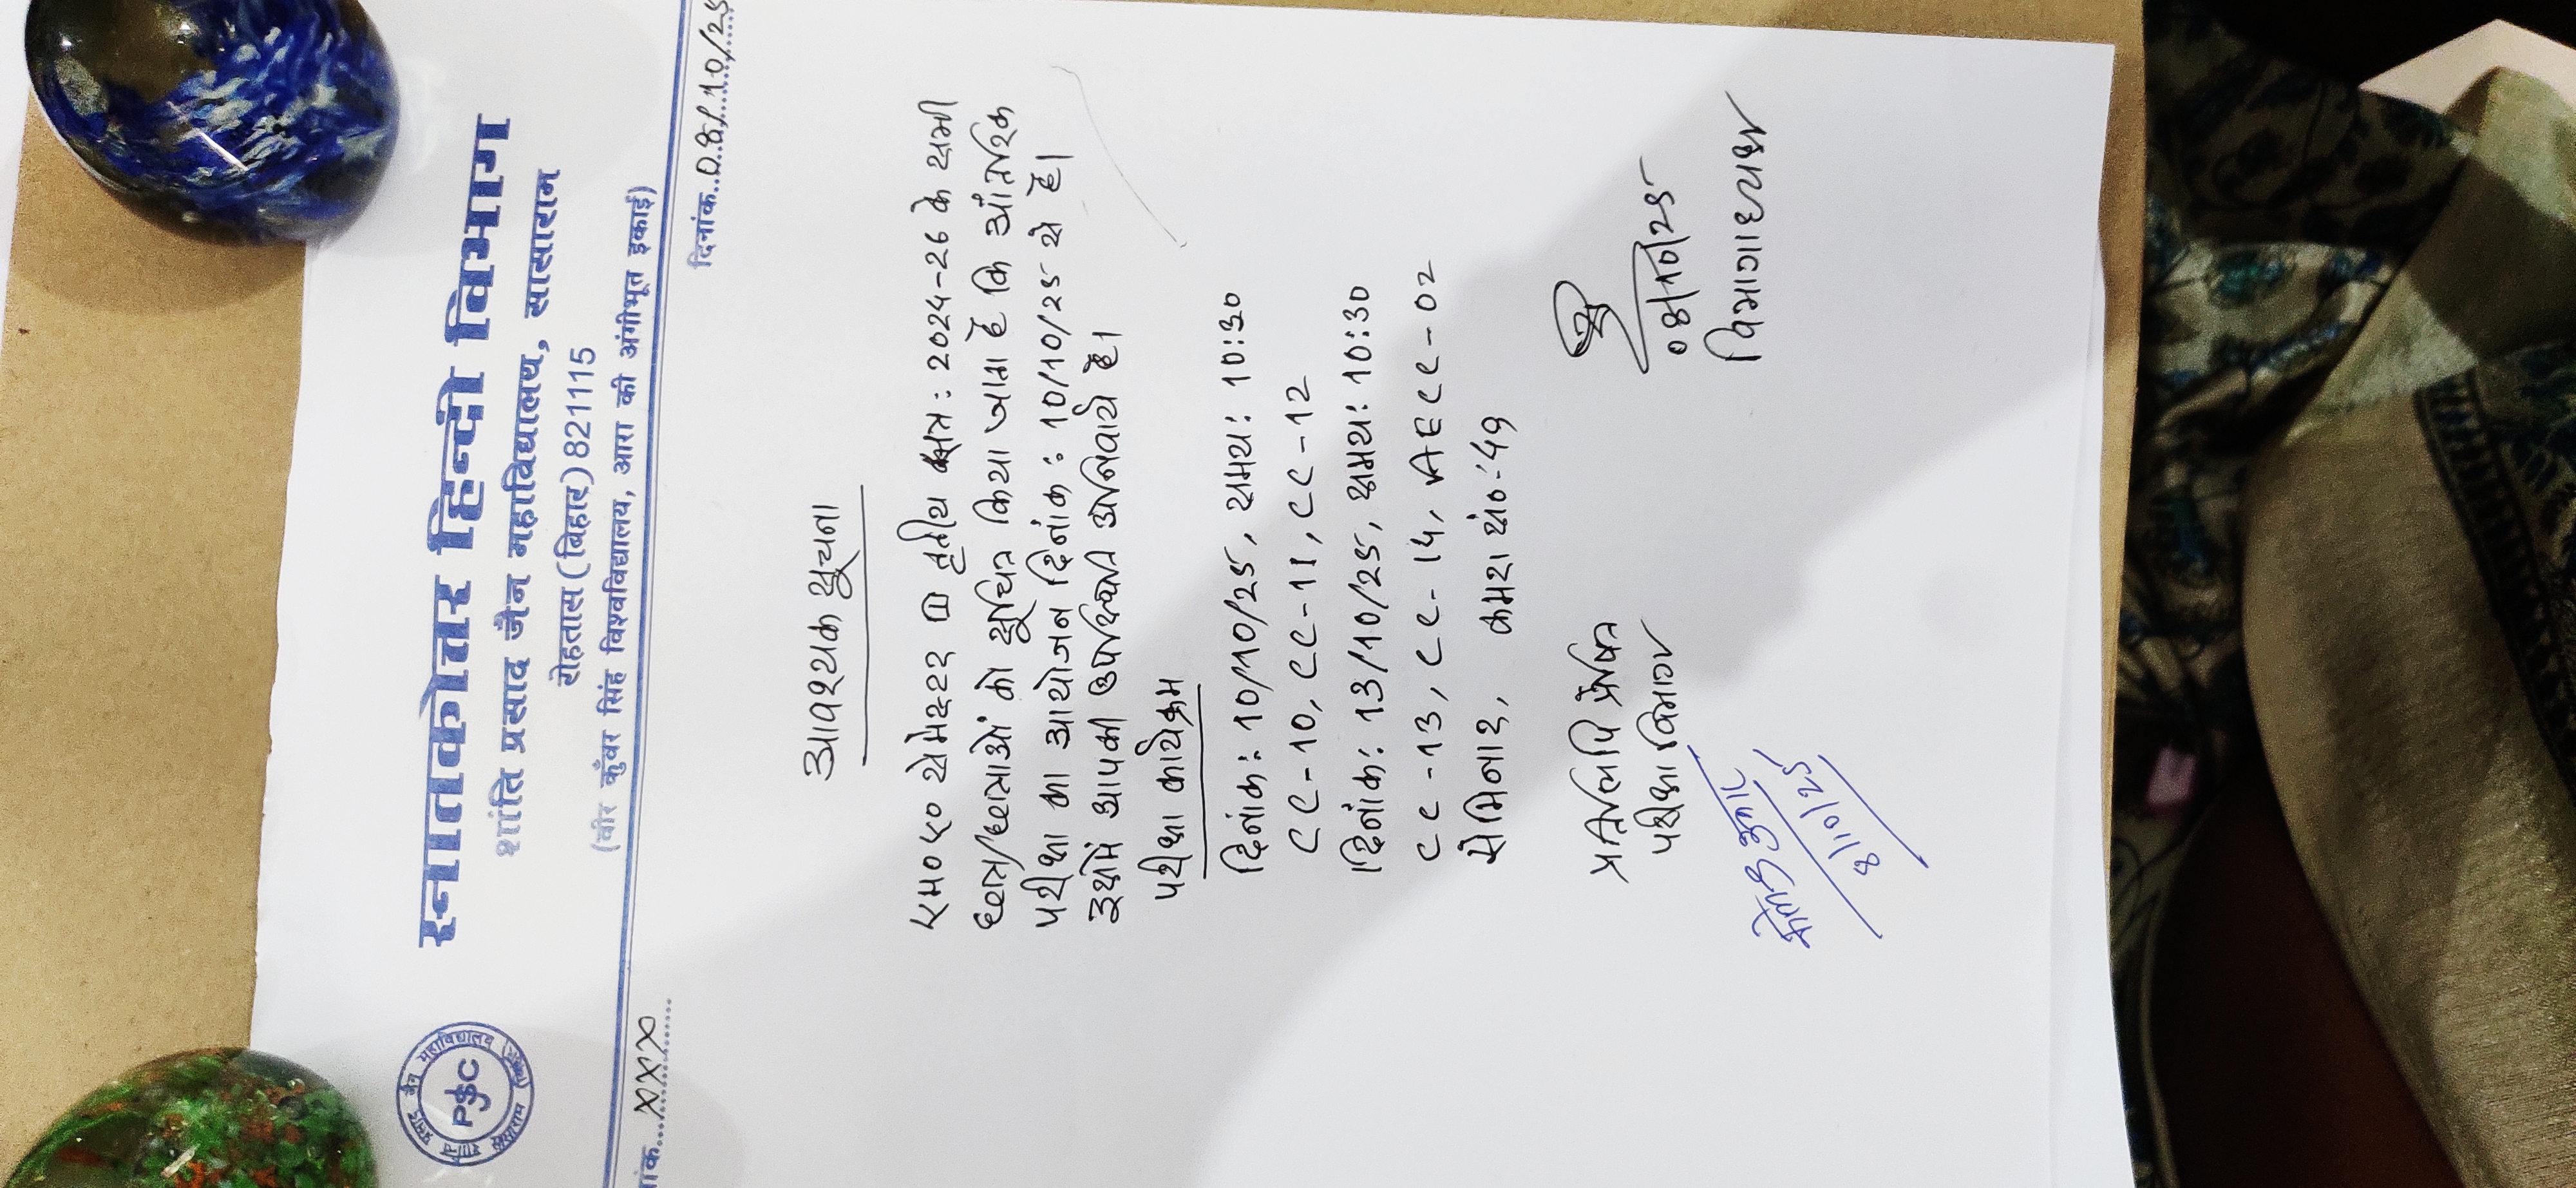 स्नातकोत्तर हिन्दी विभाग
शांति प्रसाद जैन महाविद्यालय, सासाराम
रोहतास (बिहार) 821115
(वीर कुँवर सिंह विश्वविद्यालय, आरा की अंगीभूत इकाई)
PSJC
XXX
दिनांक..08/10/25
आवश्यक सूचना
एम०ए० सेमेस्टर तृतीय सत्र: 2024-26 के सभी
छात्र/छात्राओं को सूचित किया जाता है कि आंतरिक
परीक्षा का आयोजन दिनांक: 10/10/25 से है।
इसमें आपकी उपस्थिति अनिवार्य है।
परीक्षा कार्यक्रम
दिनांक: 10/10/25, समय: 10:30
CC-10, CC-11, CC-12
दिनांक: 13/10/25, समय: 10:30
CC-13, CC-14, AECC-02
सेमिनार, कमरा सं०-49
प्रतिलिपि प्रेषित
परीक्षा विभाग
8/10/25
08/10/25
विभागाध्यक्ष